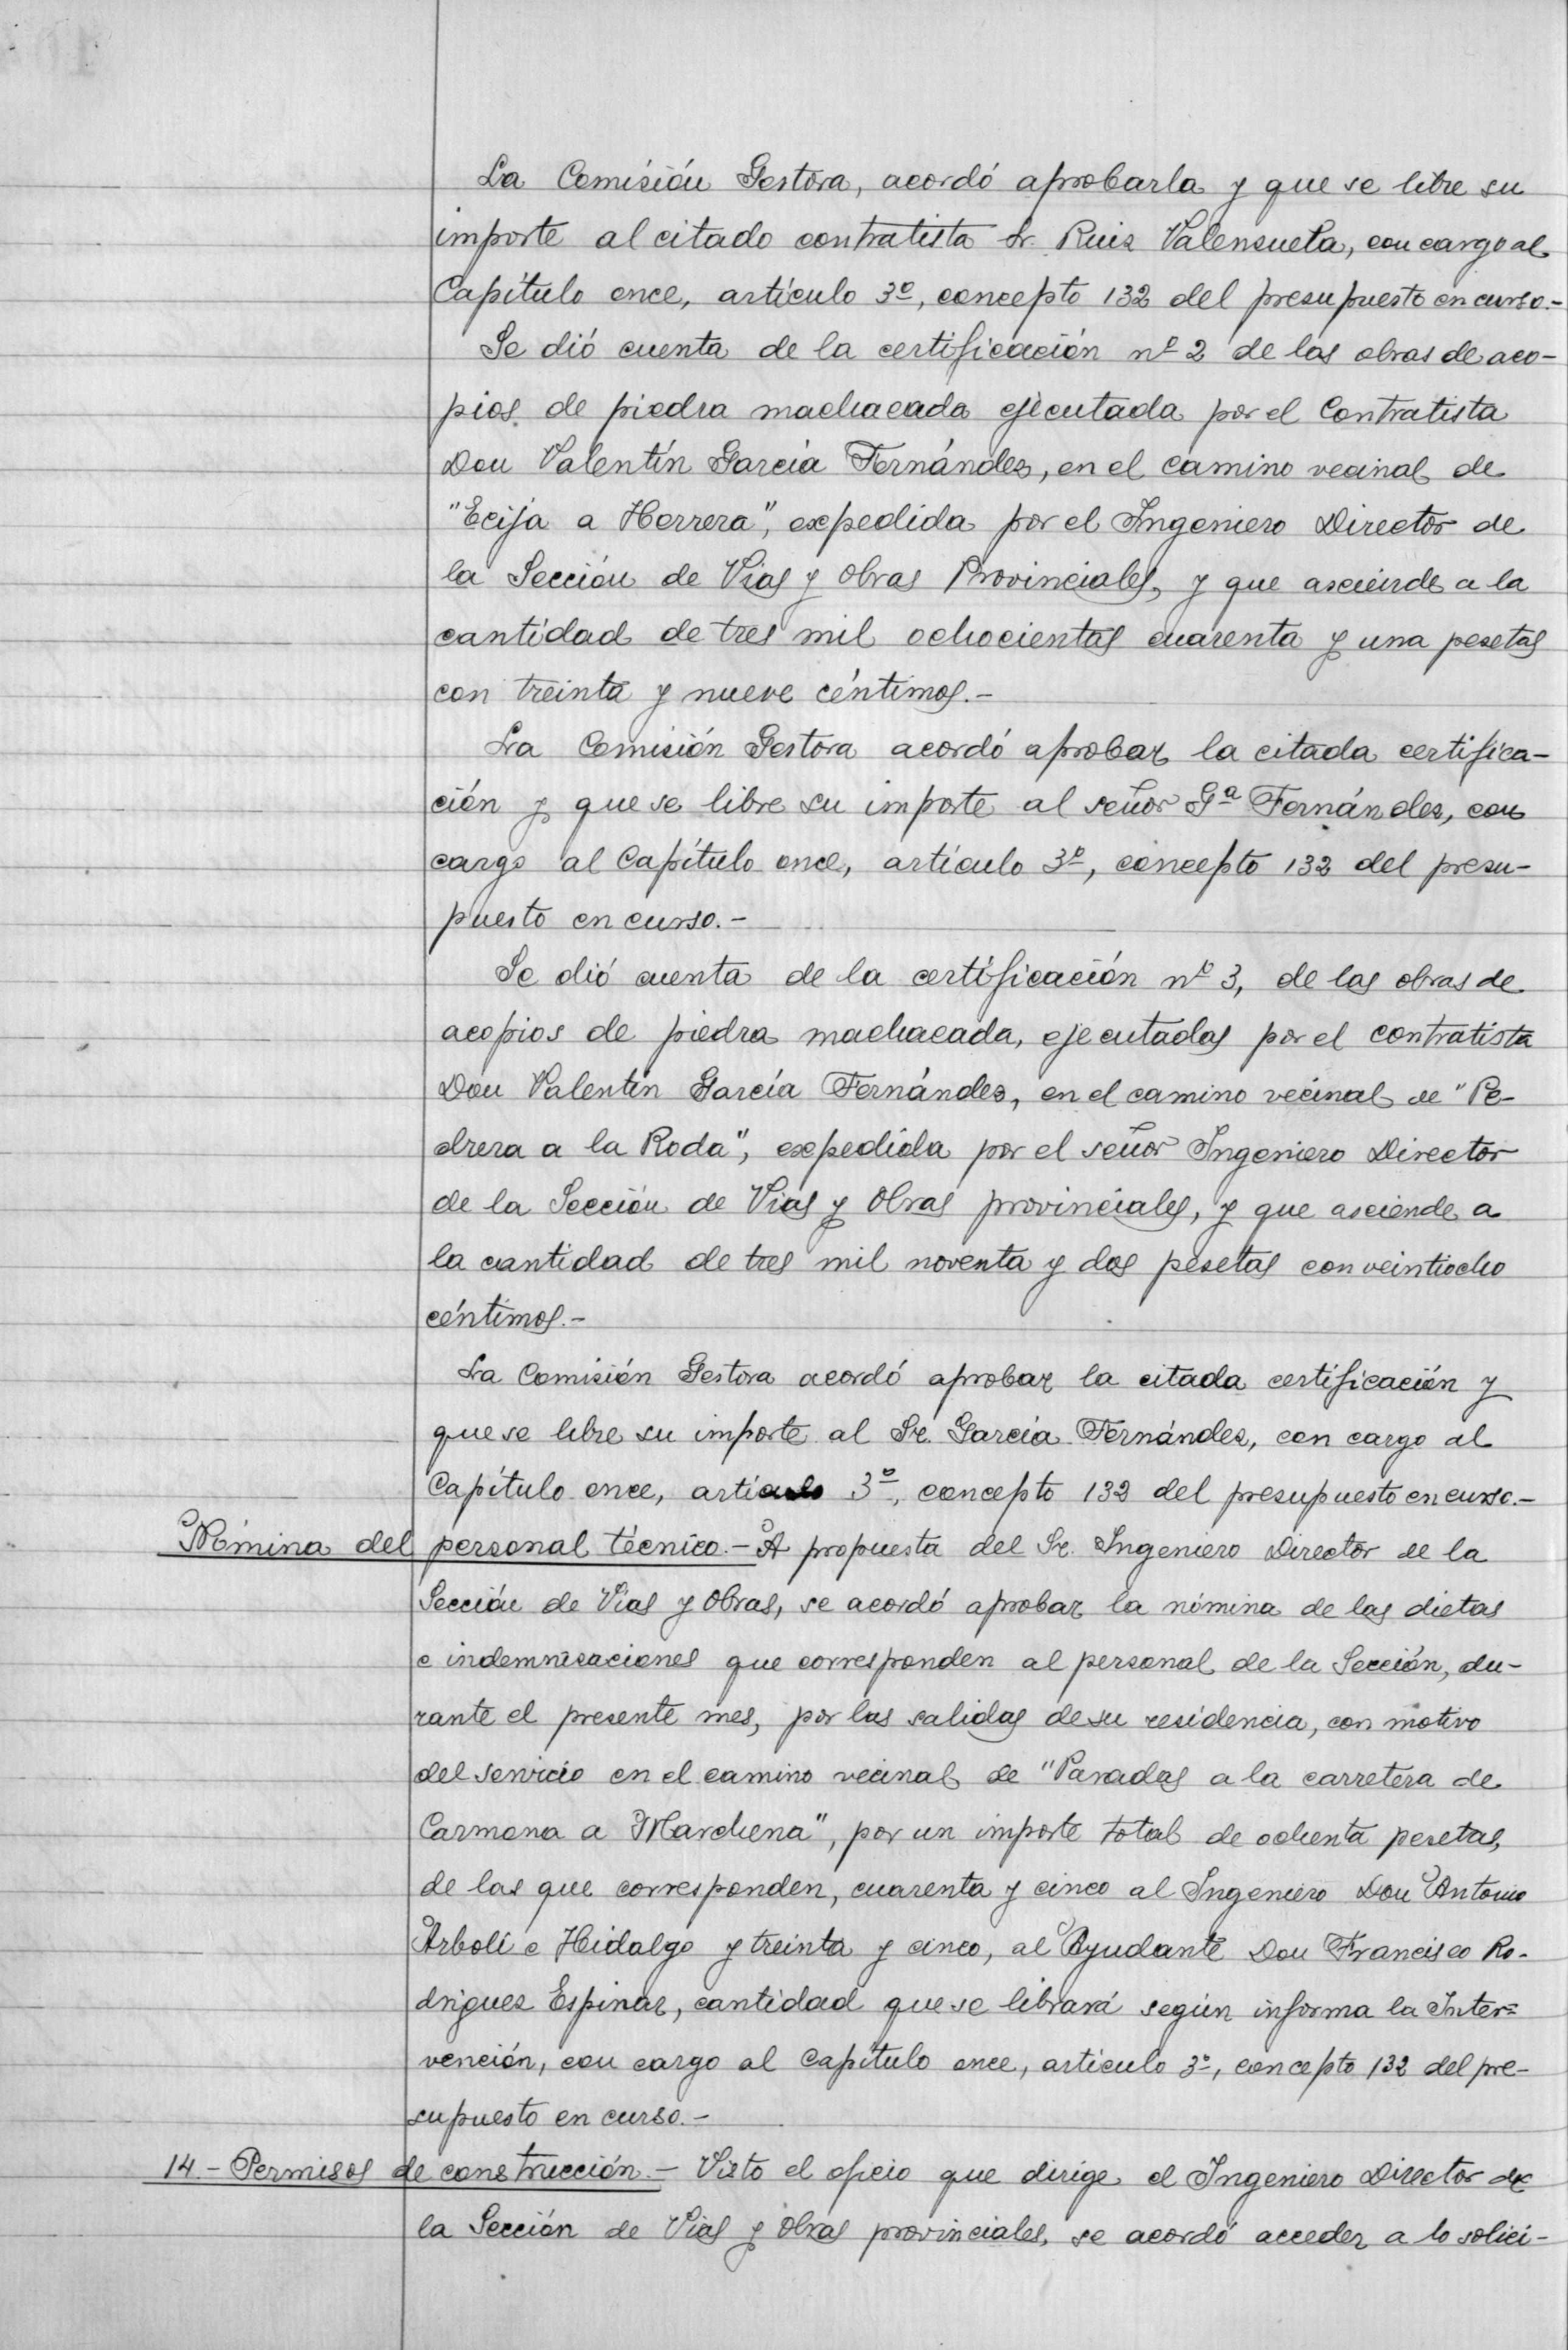 La Comisión Gestora, acordó aprobarla y que se libre su
importe al citado contratista Sr. Ruiz Valenzuela, con cargo al
Capítulo once, artículo 3º, concepto 132 del presupuesto en curso.-
Se dió cuenta de la certificación nº 2 de las obras de aco-
pios de piedra machacada ejecutada por el Contratista
Don Valentín García Fernández, en el camino vecinal de
"Ecija a Herrera", expedida por el Ingeniero Director de
la Sección de Vias y Obras Provinciales, y que asciende a la
cantidad de tres mil ochocientas cuarenta y una pesetas
con treinta y nueve céntimos.-
La Comisión Gestora acordó aprobar la citada certifica-
ción y que se libre su importe al señor Gª Fernández, con
cargo al Capítulo once, artículo 3º, concepto 132 del presu-
puesto en curso.-
Se dió cuenta de la certificación nº 3, de las obras de
acopios de piedra machacada, ejecutadas por el contratista
Don Valentín García Fernández, en el camino vecinal de "Pe-
drera a la Roda", expedida por el señor Ingeniero Director
de la Sección de Vias y Obras provinciales, y que asciende a
la cantidad de tres mil noventa y dos pesetas con veintiocho
céntimos.-
La Comisión Gestora acordó aprobar la citada certificación y
que se libre su importe al Sr. García Fernández, con cargo al
Capítulo once, artículo 3º, concepto 132 del presupuesto en curso.-
Nómina del personal técnico.- A propuesta del Sr. Ingeniero Director de la
Sección de Vías y Obras, se acordó aprobar la nómina de las dietas
e indemnizaciones que corresponden al personal de la Sección, du-
rante el presente mes, por las salidas de su residencia, con motivo
del servicio en el camino vecinal de "Paradas a la carretera de
Carmona a Marchena", por un importe total de ochenta pesetas,
de las que corresponden, cuarenta y cinco al Ingeniero Don Antonio
Arbolí e Hidalgo y treinta y cinco, al Ayudante Don Francisco Ro-
driguez Espinar, cantidad que se librará según informa la Inter=
vención, con cargo al Capítulo once, artículo 3º, concepto 132 del pre-
supuesto en curso.-
14.- Permisos de construcción.- Visto el oficio que dirige el Ingeniero Director de
la Sección de Vias y Obras provinciales, se acordó acceder a lo solici-